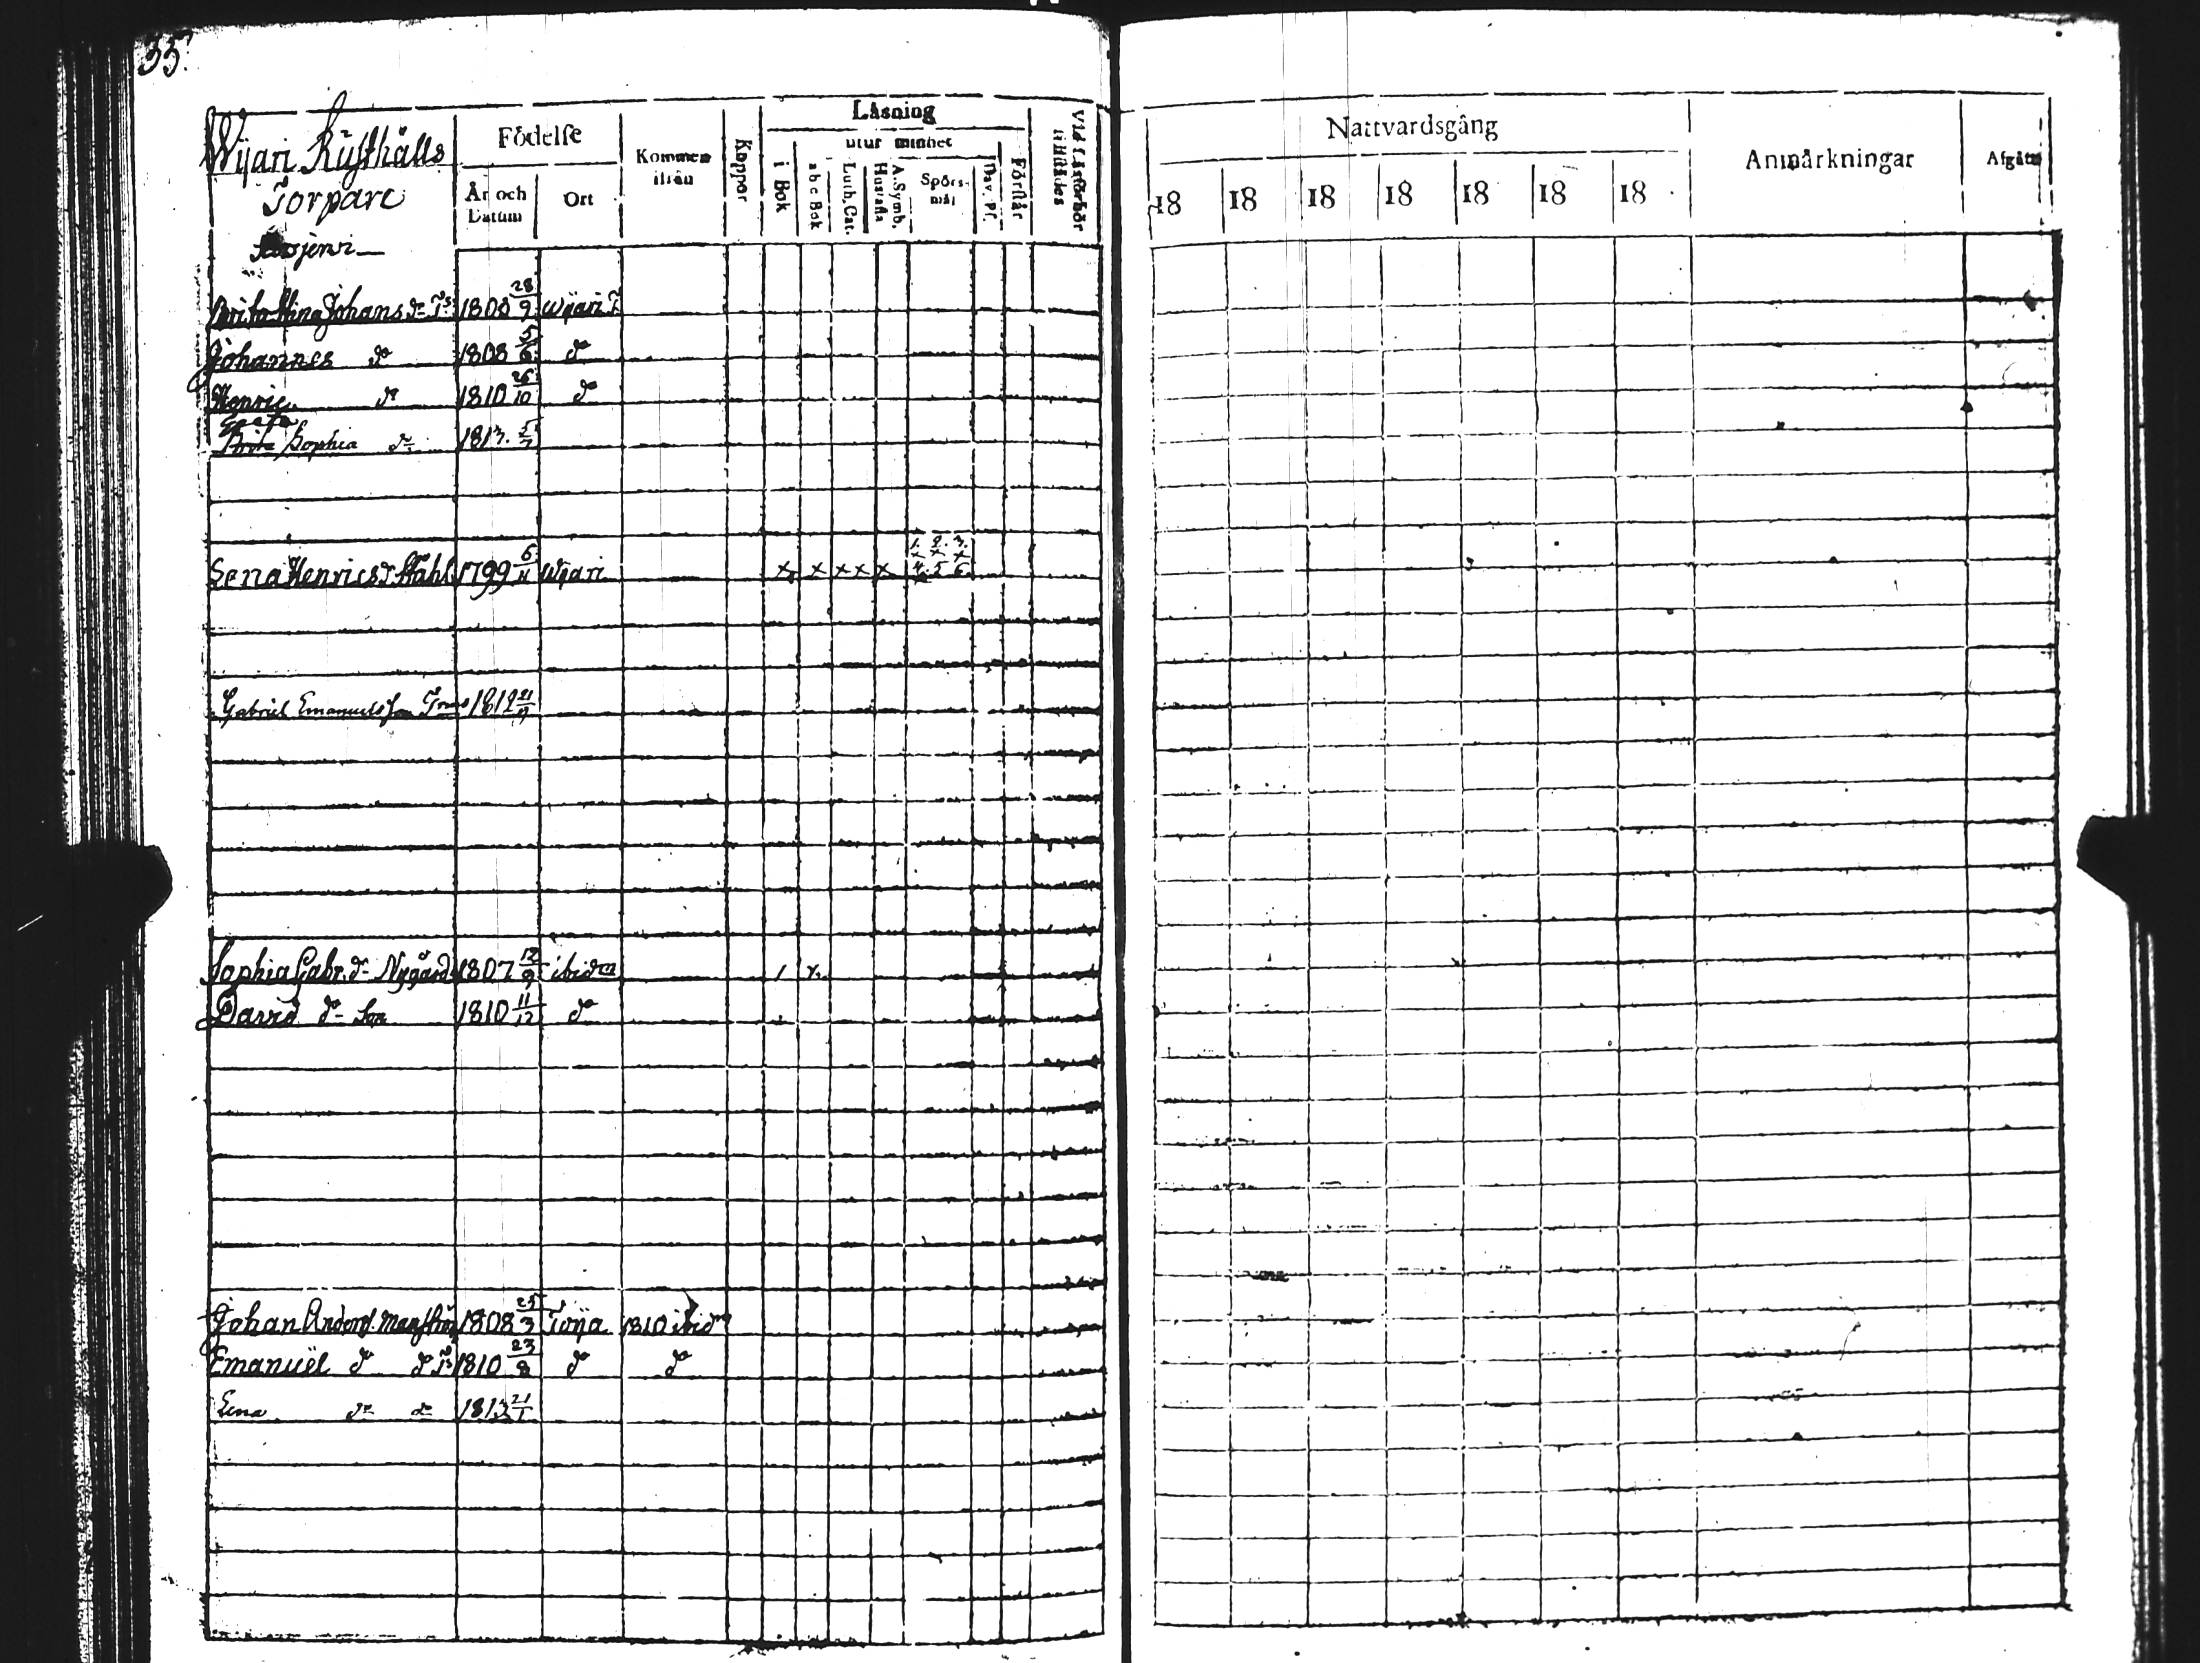 35.
Wijari Rusthålls
Torpare
Födelse
År och Datum
Ort
Kommen ifrån
Koppor
Läsning
utur minnet
i Bok
abc Bok
Luth. Cat.
Hustafla
A. Symb.
Spörsmål
Dav. Ps.
Förstår
Vid Läsförhör tillstädes
Nattvardsgång
18 18 18 18 18 18 18
Anmärkningar
Afgått
Brita Stina Johans dr 1800 28/9 Wijari
Johannes do 1808 5/6 do
Henric do 1810 26/10 do
Greta
Brita Sophia do 1813. 5/7
1. 2. 3.
x x x
Lena Henricsdr Ståhl 1799 6/11 Wijari x x x x x 4. 5 6.
Gabriel Emanuelsson 1812 21/9
Sophia Gabr. dr Nygård 1807 12/9 ibidm 1 x.
David do Son 1810 11/12 do
Johan Anders. 1808 25/3 Töija 1810 ibidm
Emanuël do do 1810 23/8 do do
Lena do do 1813 21/1